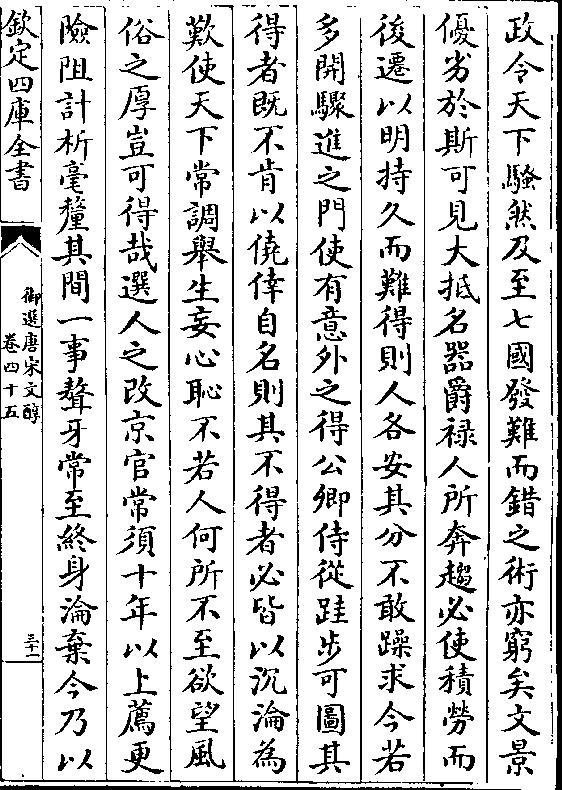 政令天下騷然及至七國發難而錯之術亦窮矣文景
優劣於斯可見大抵名器爵禄人所奔趨必使積勞而
後遷以明持久而難得則人各安其分不敢躁求今若
多開驟進之門使有意外之得公卿侍從跬步可圖其
得者既不肯以僥倖自名則其不得者必皆以沉淪為
歎使天下常調舉生妄心恥不若人何所不至欲望風
俗之厚豈可得哉選人之改京官常須十年以上薦更
險阻計析毫釐其間一事聱牙常至終身淪棄今乃以
欽定四庫全書
御選唐宋文醇
卷四十五
三十一